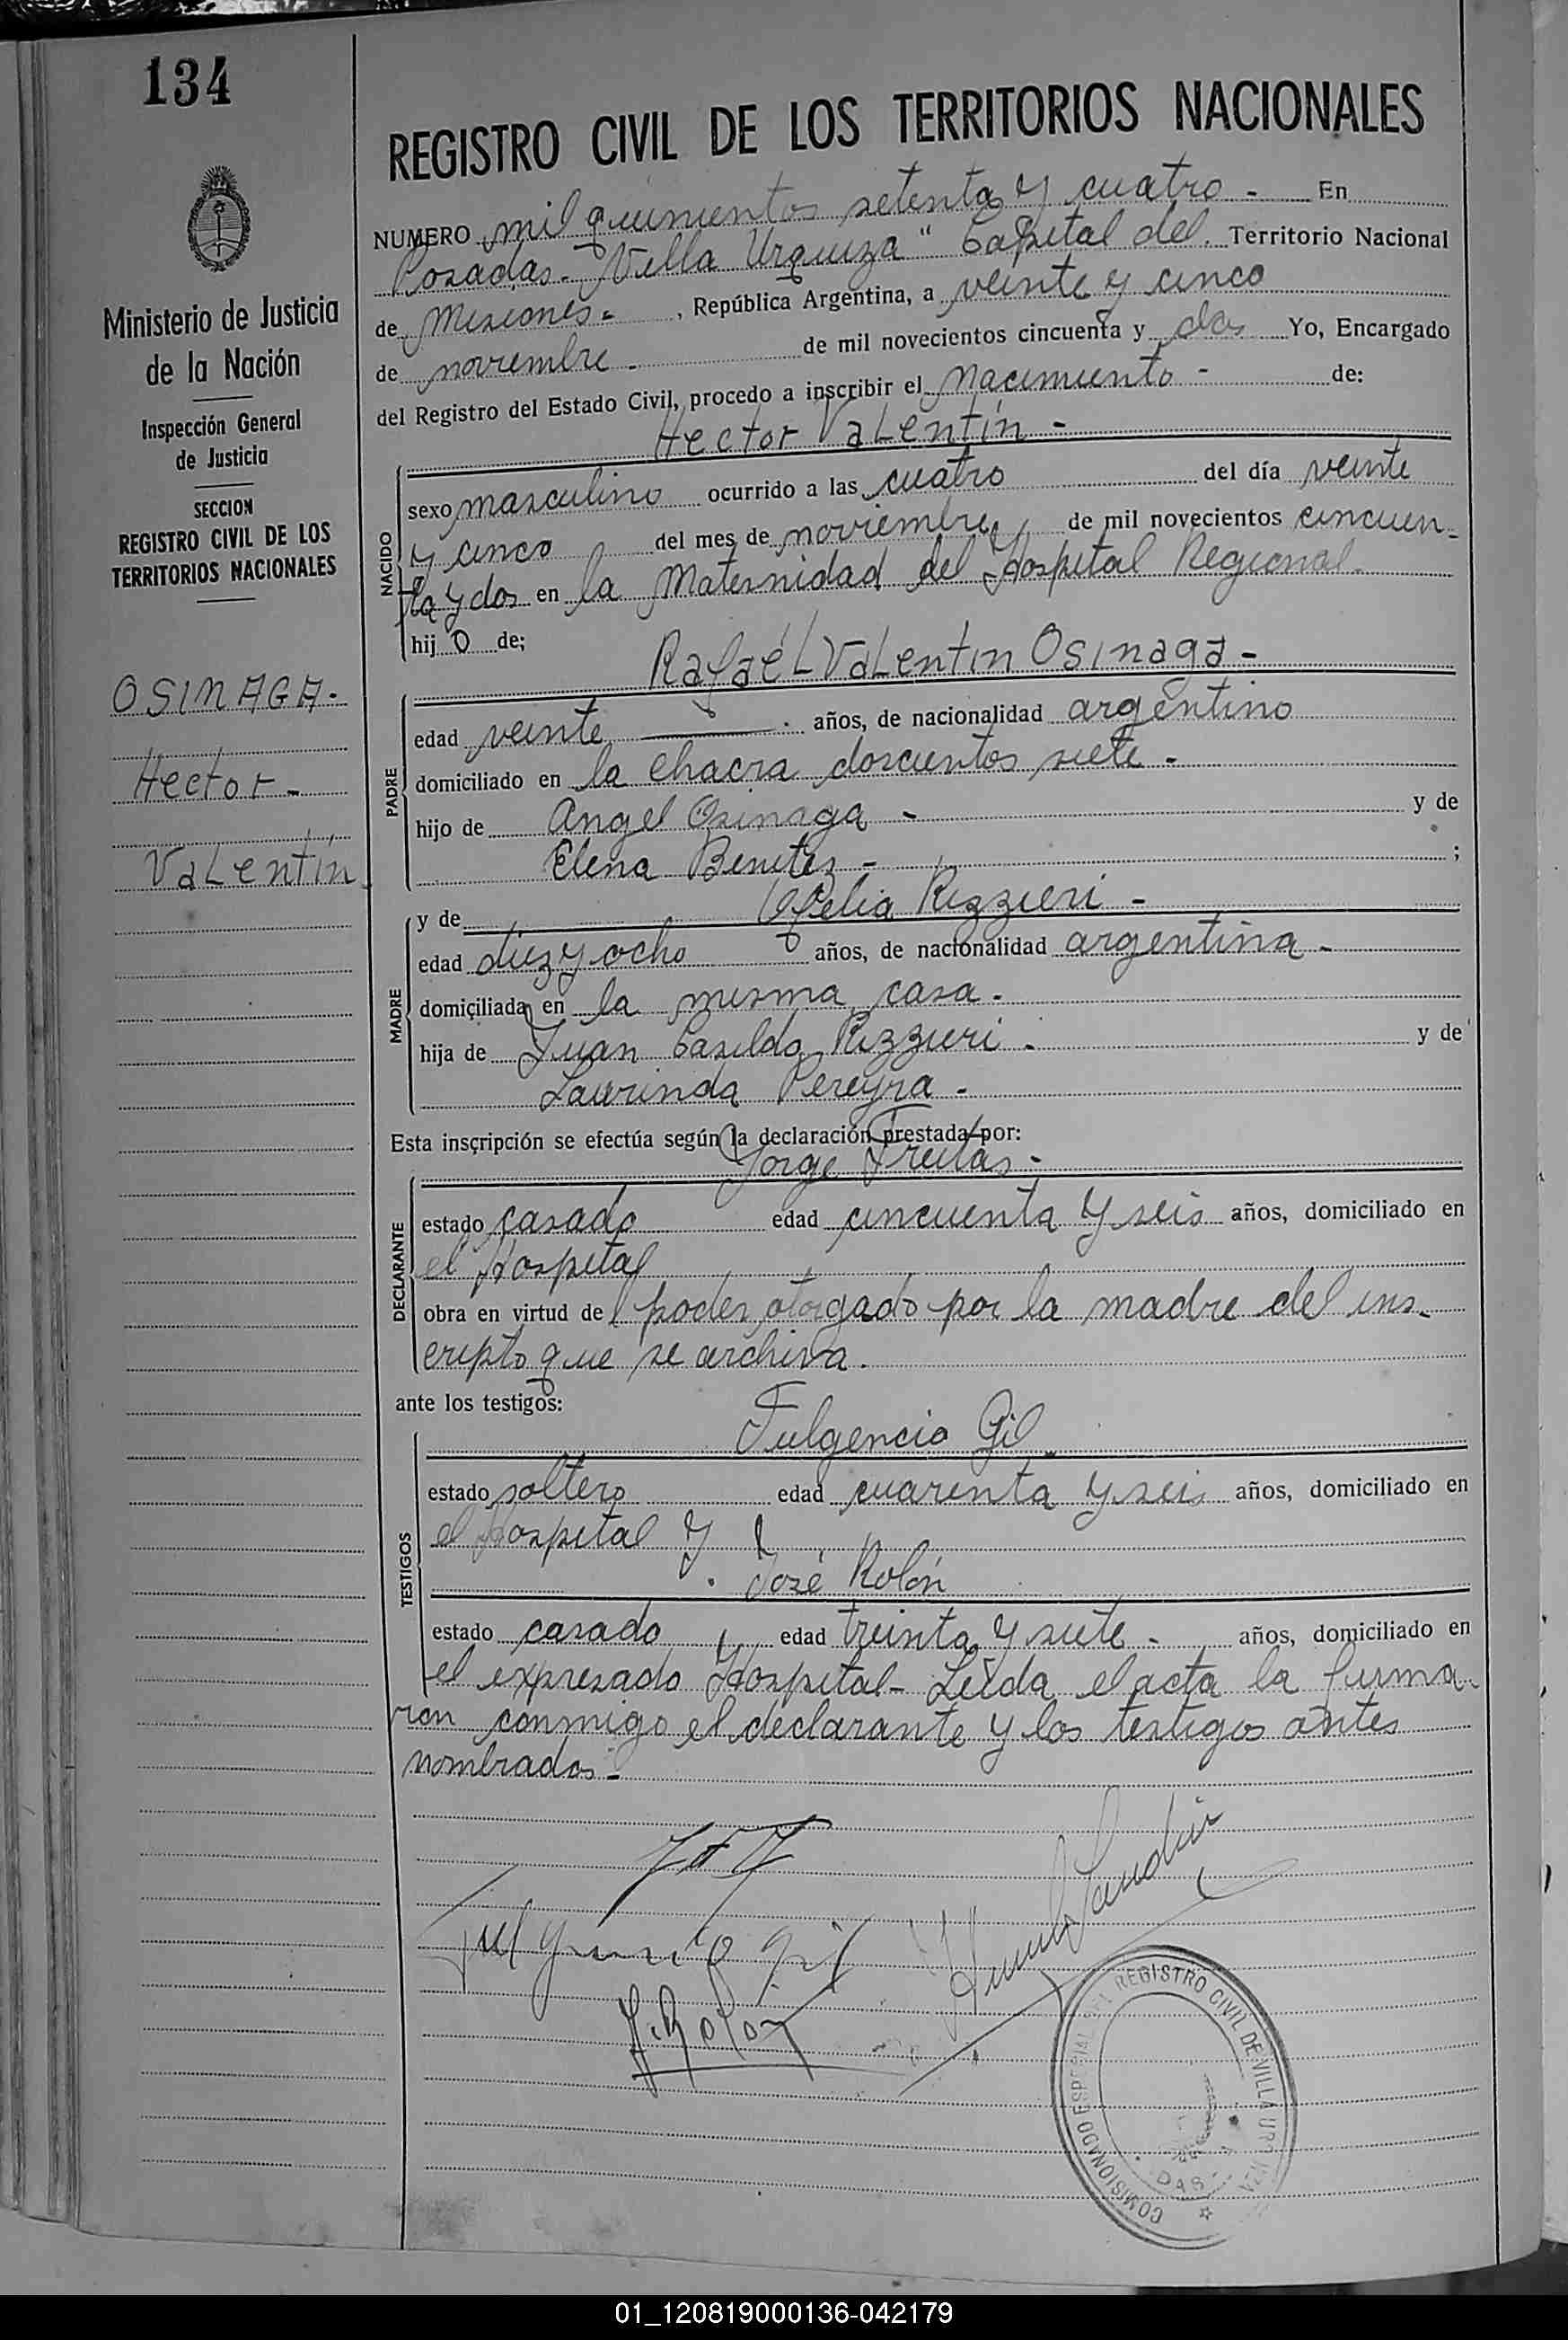 134
REGISTRO CIVIL DE LOS TERRITORIOS NACIONALES
Ministerio de Justicia
de la Nación
Inspección General
de Justicia
SECCION
REGISTRO CIVIL DE LOS
TERRITORIOS NACIONALES
OSINAGA.-
Hector -
Valentín
NUMERO mil quinientos setenta y cuatro - En
Posadas - Villa Urquiza" Capital del Territorio Nacional
de Misiones - , República Argentina, a veinte y cinco
de noviembre - de mil novecientos cincuenta y dos Yo, Encargado
del Registro del Estado Civil, procedo a inscribir el nacimiento - de:
Hector Valentín -
NACIDO
sexo masculino ocurrido a las cuatro del día veinte
y cinco del mes de noviembre de mil novecientos cincuen-
ta y dos en la Maternidad del Hospital Regional.
hijo de;
Rafaél Valentin Osinaga -
PADRE
edad veinte años, de nacionalidad argentino
domiciliado en la chacra doscientos siete -
hijo de Angel Osinaga - y de
Elena Benites - ;
MADRE
y de Ofelia Rizzieri -
edad diez y ocho años, de nacionalidad argentina -
domiciliada en la misma casa -
hija de Juan Casildo Rizzieri - y de
Laurinda Pereyra -
Esta inscripción se efectúa según la declaración prestada por:
Jorge Freitas -
DECLARANTE
estado casado edad cincuenta y seis años, domiciliado en
el Hospital
obra en virtud del poder otorgado por la madre del ins-
cripto que se archiva.
ante los testigos:
Fulgencio Gil
TESTIGOS
estado soltero edad cuarenta y seis años, domiciliado en
el Hospital y
José Rolón
estado casado edad treinta y siete - años, domiciliado en
el expresado Hospital - Leída el acta la firma-
ron conmigo el declarante y los testigos antes
nombrados -
Fulgencio Gil
J. Rolon
COMISIONADO ESPECIAL DEL REGISTRO CIVIL DE VILLA URQUIZA
01_120819000136-042179